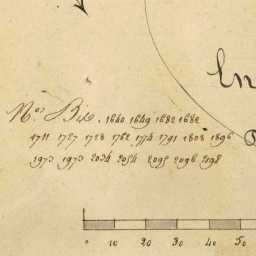 En
Nos Bis. 1640 1649 1682 1682
1711 1727 1728 1762 1774 1791 1808 1896
1973 1973 2034 2054 2095 2096 2098
0 10 20 30 40 50